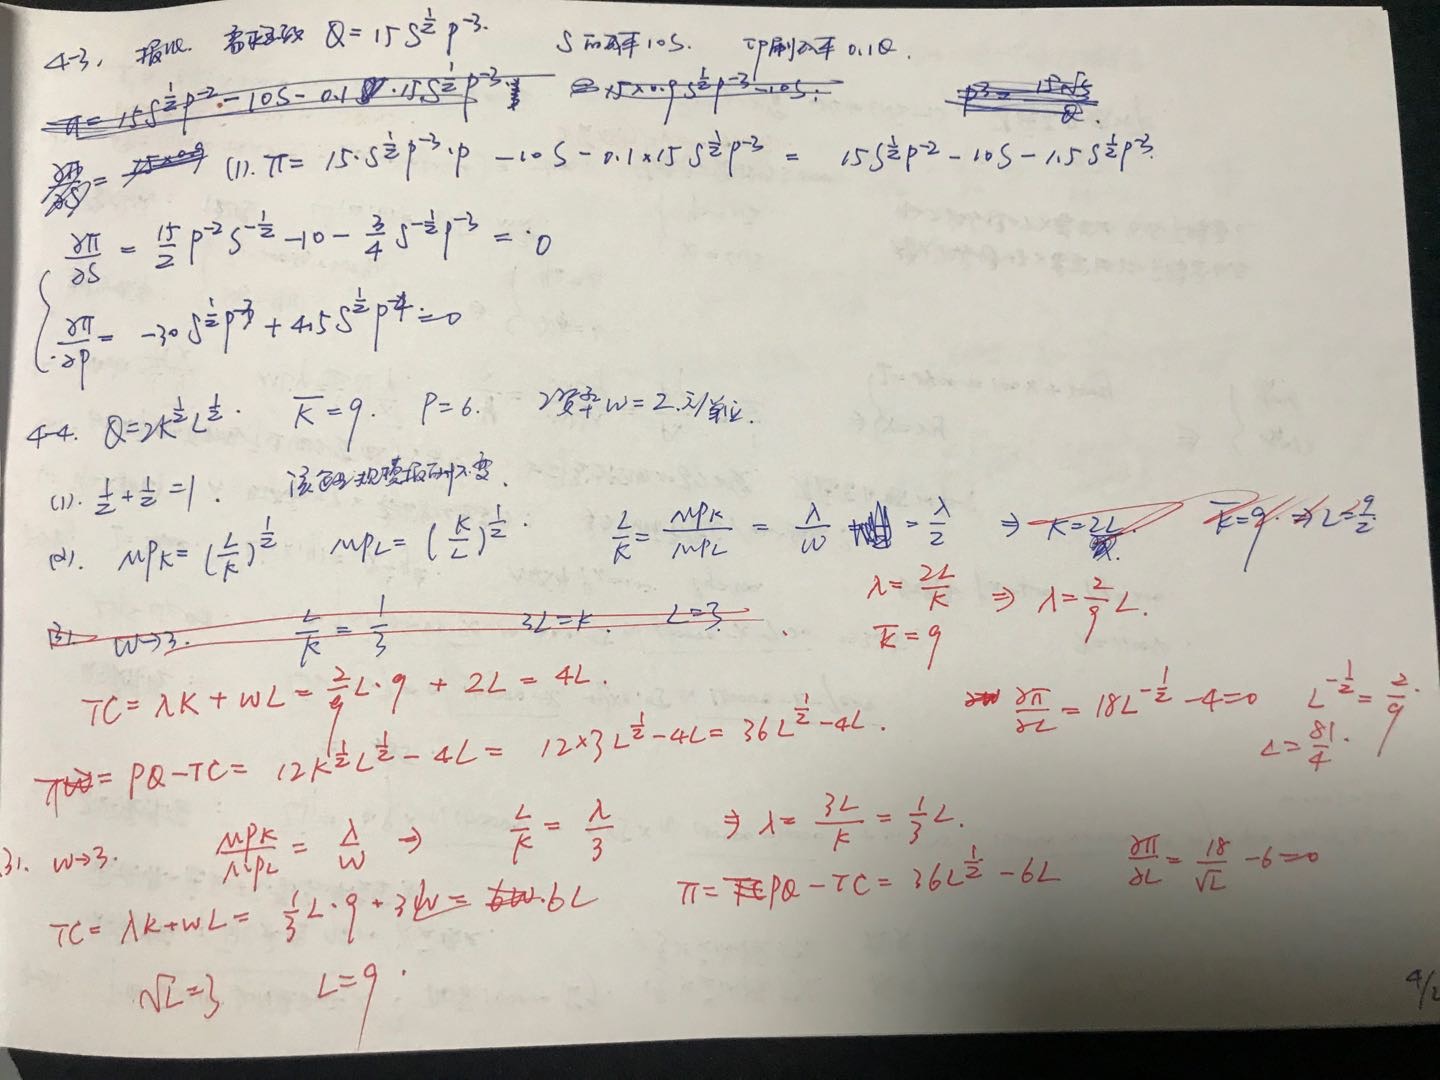 4-3, 报业. 需求函数 Q = 15 S^{1/2} P^{-3}. S 的成本 10S. 印刷成本 0.1Q.
π = 15 S^{1/2} P^{-2} - 10S - 0.1 · 15 S^{1/2} P^{-3} 15×0.9 S^{1/2} P^{-3} - 10S. P^3 = 15√S / Q.
∂π/∂S = 15×0.9 (1). π = 15·S^{1/2} P^{-3}·P - 10S - 0.1×15 S^{1/2} P^{-3} = 15 S^{1/2} P^{-2} - 10S - 1.5 S^{1/2} P^{-3}.
∂π/∂S = 15/2 P^{-2} S^{-1/2} - 10 - 3/4 S^{-1/2} P^{-3} = 0
∂π/∂P = -30 S^{1/2} P^{-3} + 4.5 S^{1/2} P^{-4} = 0
4-4. Q = 2K^{1/2} L^{1/2}. K̄ = 9. P = 6. 工资率 w = 2.元/单位.
(1). 1/2 + 1/2 = 1. 该企业规模报酬不变.
(2). MPK = (L/K)^{1/2} MPL = (K/L)^{1/2}. L/K = MPK/MPL = λ/w = λ/2 ⇒ K = 2L/λ. K̄ = 9. ⇒ L = 9/2
λ = 2L/K ⇒ λ = 2/9 L.
K̄ = 9
(3). w→3. L/K = 1/3 3L = K. L = 3.
TC = λK + wL = 2/9 L·9 + 2L = 4L.
∂π/∂L = 18L^{-1/2} - 4 = 0 L^{-1/2} = 2/9.
L = 81/4.
π = PQ - TC = 12K^{1/2} L^{1/2} - 4L = 12×3L^{1/2} - 4L = 36L^{1/2} - 4L.
3). w→3. MPK/MPL = λ/w ⇒ L/K = λ/3 ⇒ λ = 3L/K = 1/3 L.
TC = λK + wL = 1/3 L·9 + 3W = 6L π = PQ - TC = 36L^{1/2} - 6L ∂π/∂L = 18/√L - 6 = 0
√L = 3 L = 9.